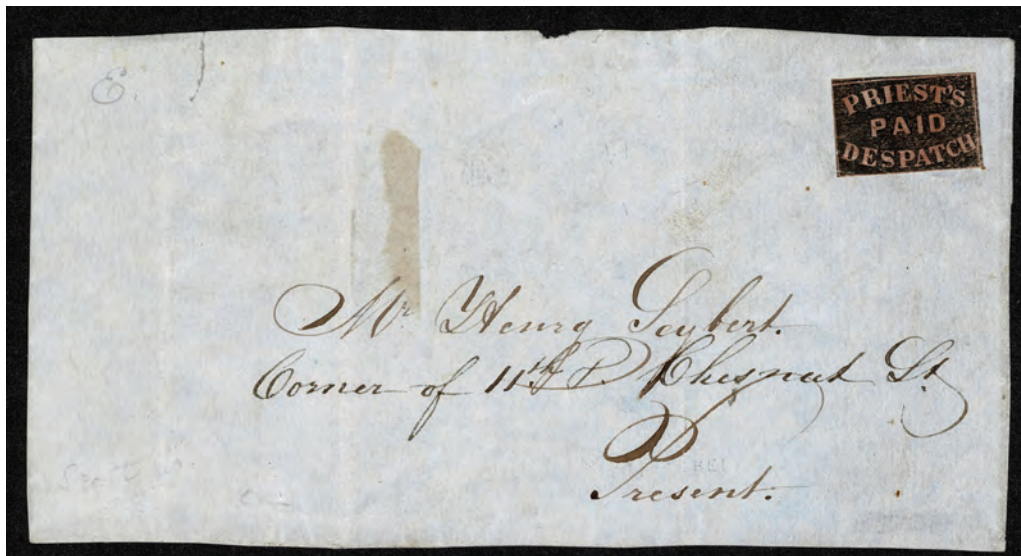 E.
PRIEST'S
PAID
DESPATCH
Mr Henry Seybert.
Corner of 11th & Chesnut St
Present.